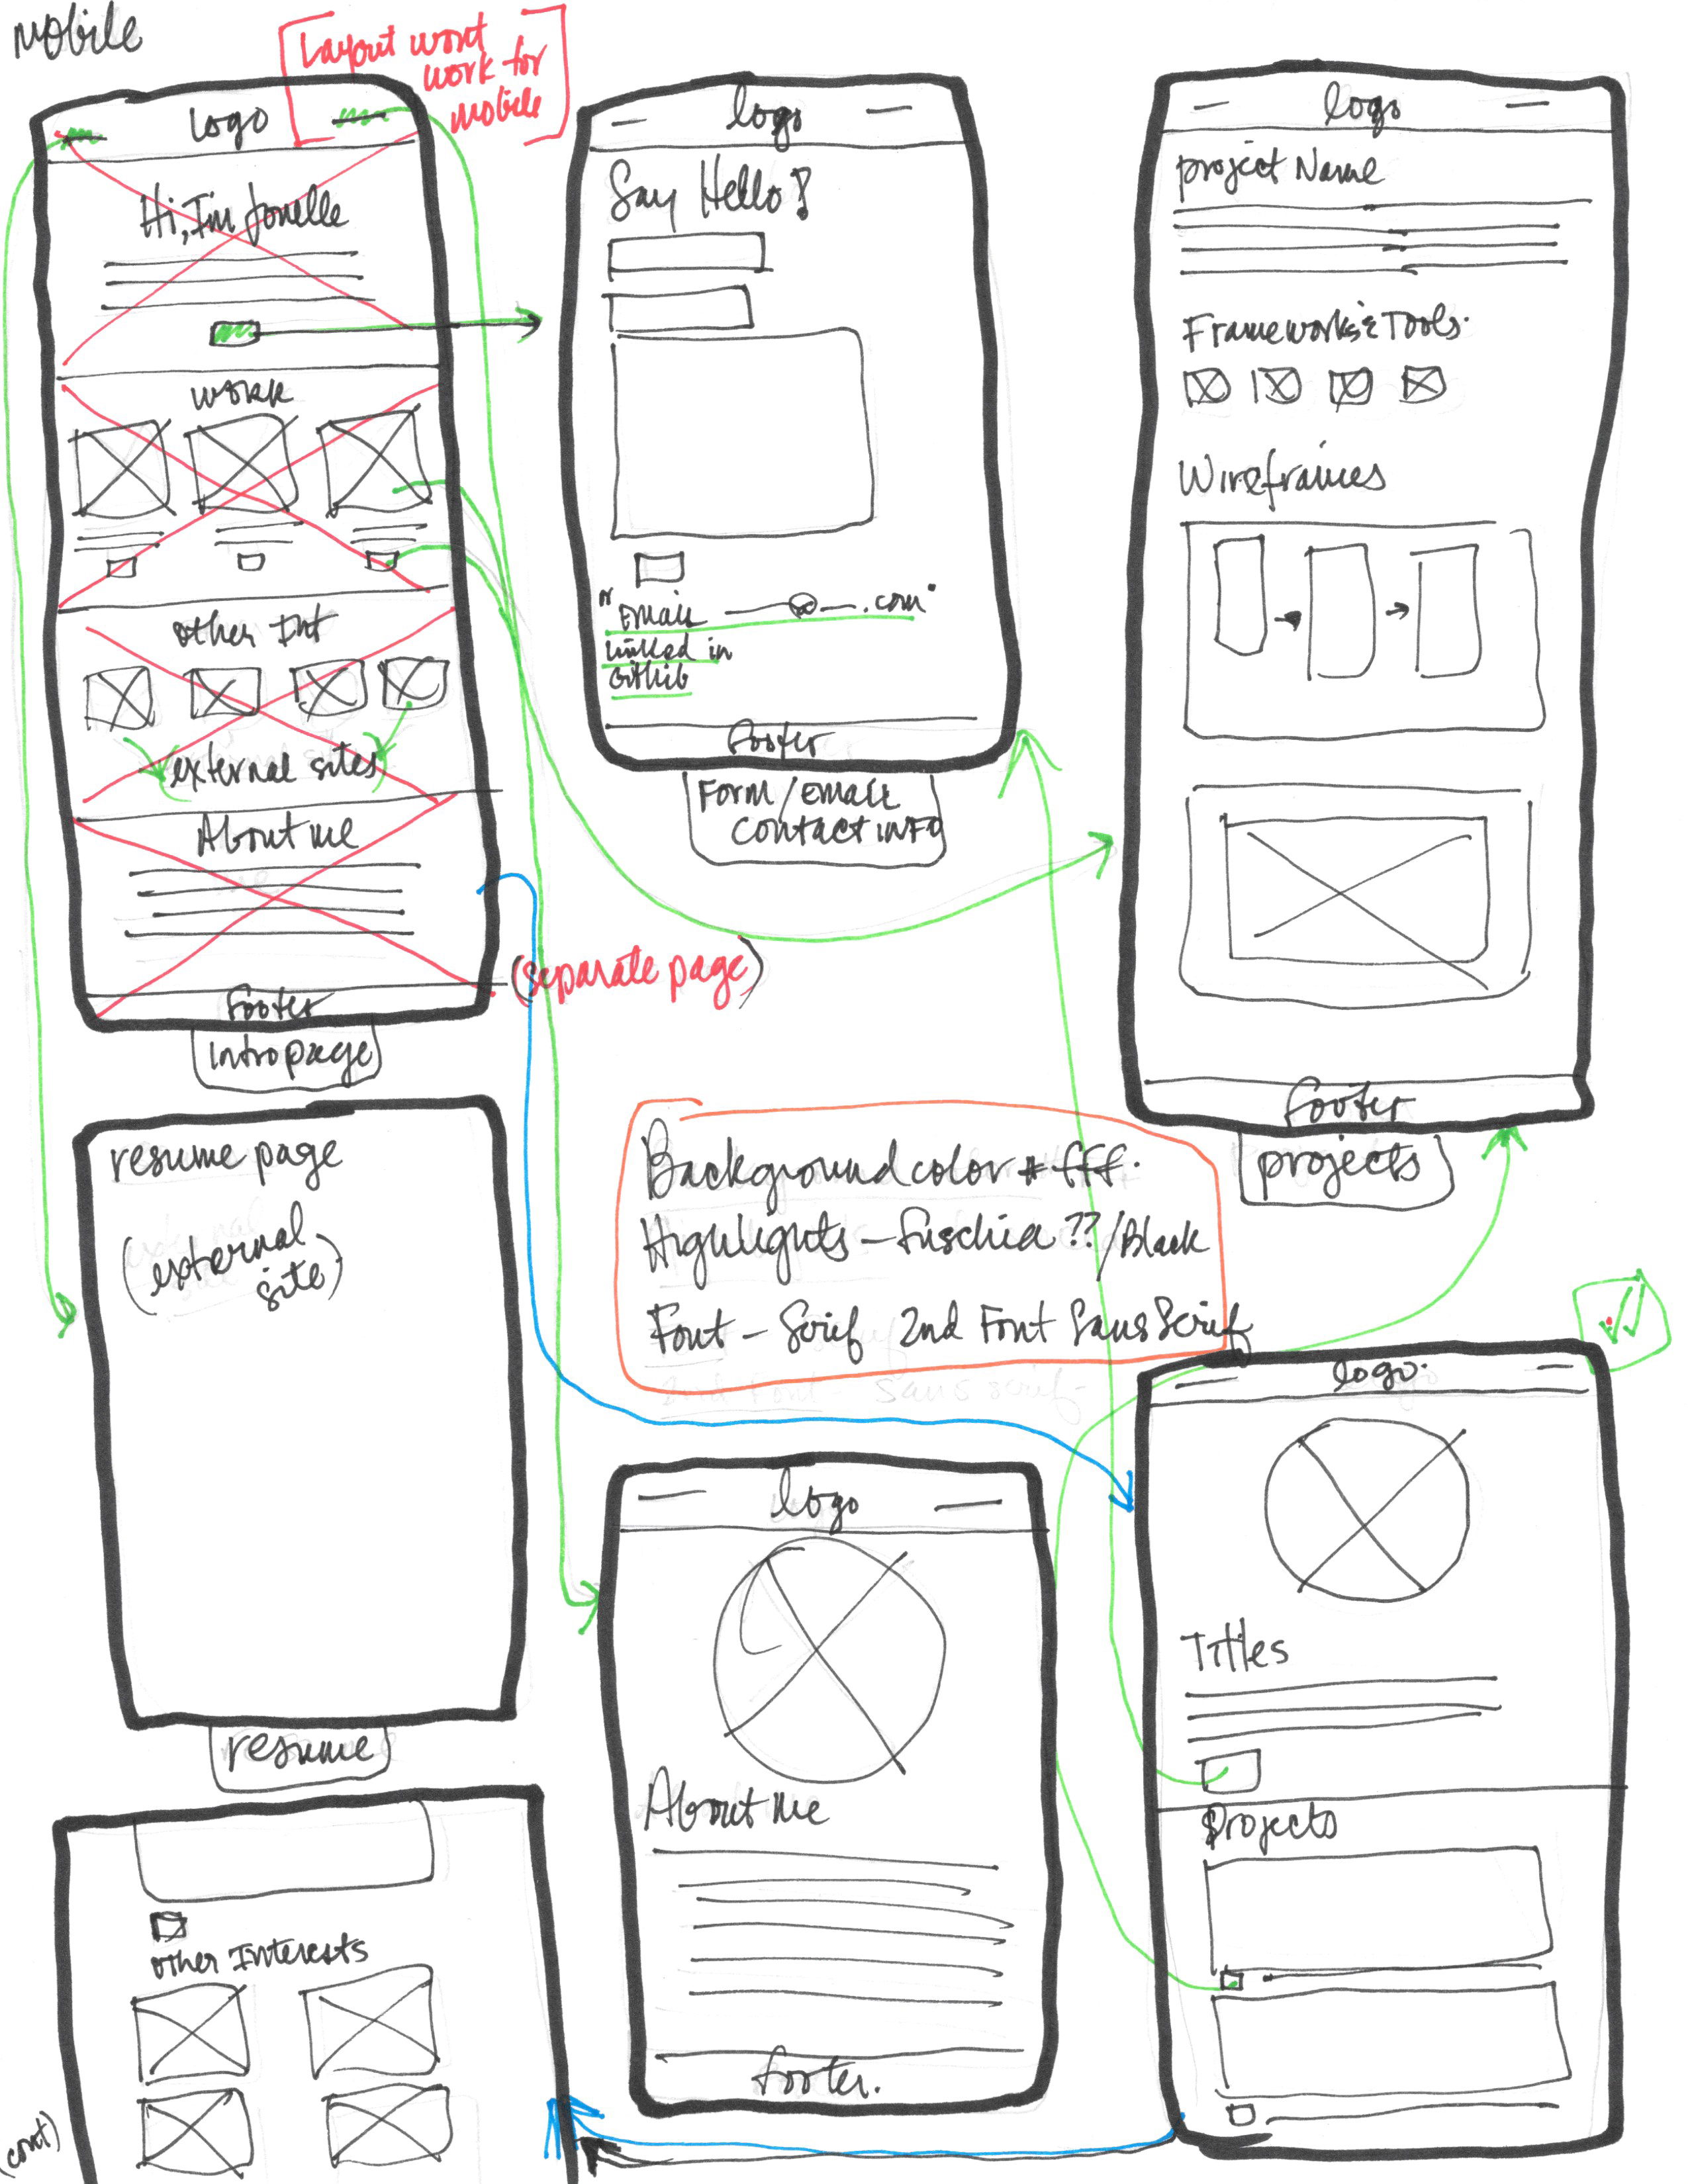 Mobile
Layout wont
work for
mobile
Logo
Hi, I'm Jonelle
work
other Int
external sites
About me
Footer
intro page
(separate page)
logo
Say Hello!
"Email @ .com"
linked in
Github
footer
Form/Email
contact INFO
logo
project Name
Frameworks & Tools.
Wireframes
footer
projects
resume page
(external
site)
resume
Background color #fff.
Highlights - Fuschia ??/Black
Font - Serif 2nd Font Sans Serif
logo
About me
footer.
logo.
Titles
Projects
other Interests
(cont)